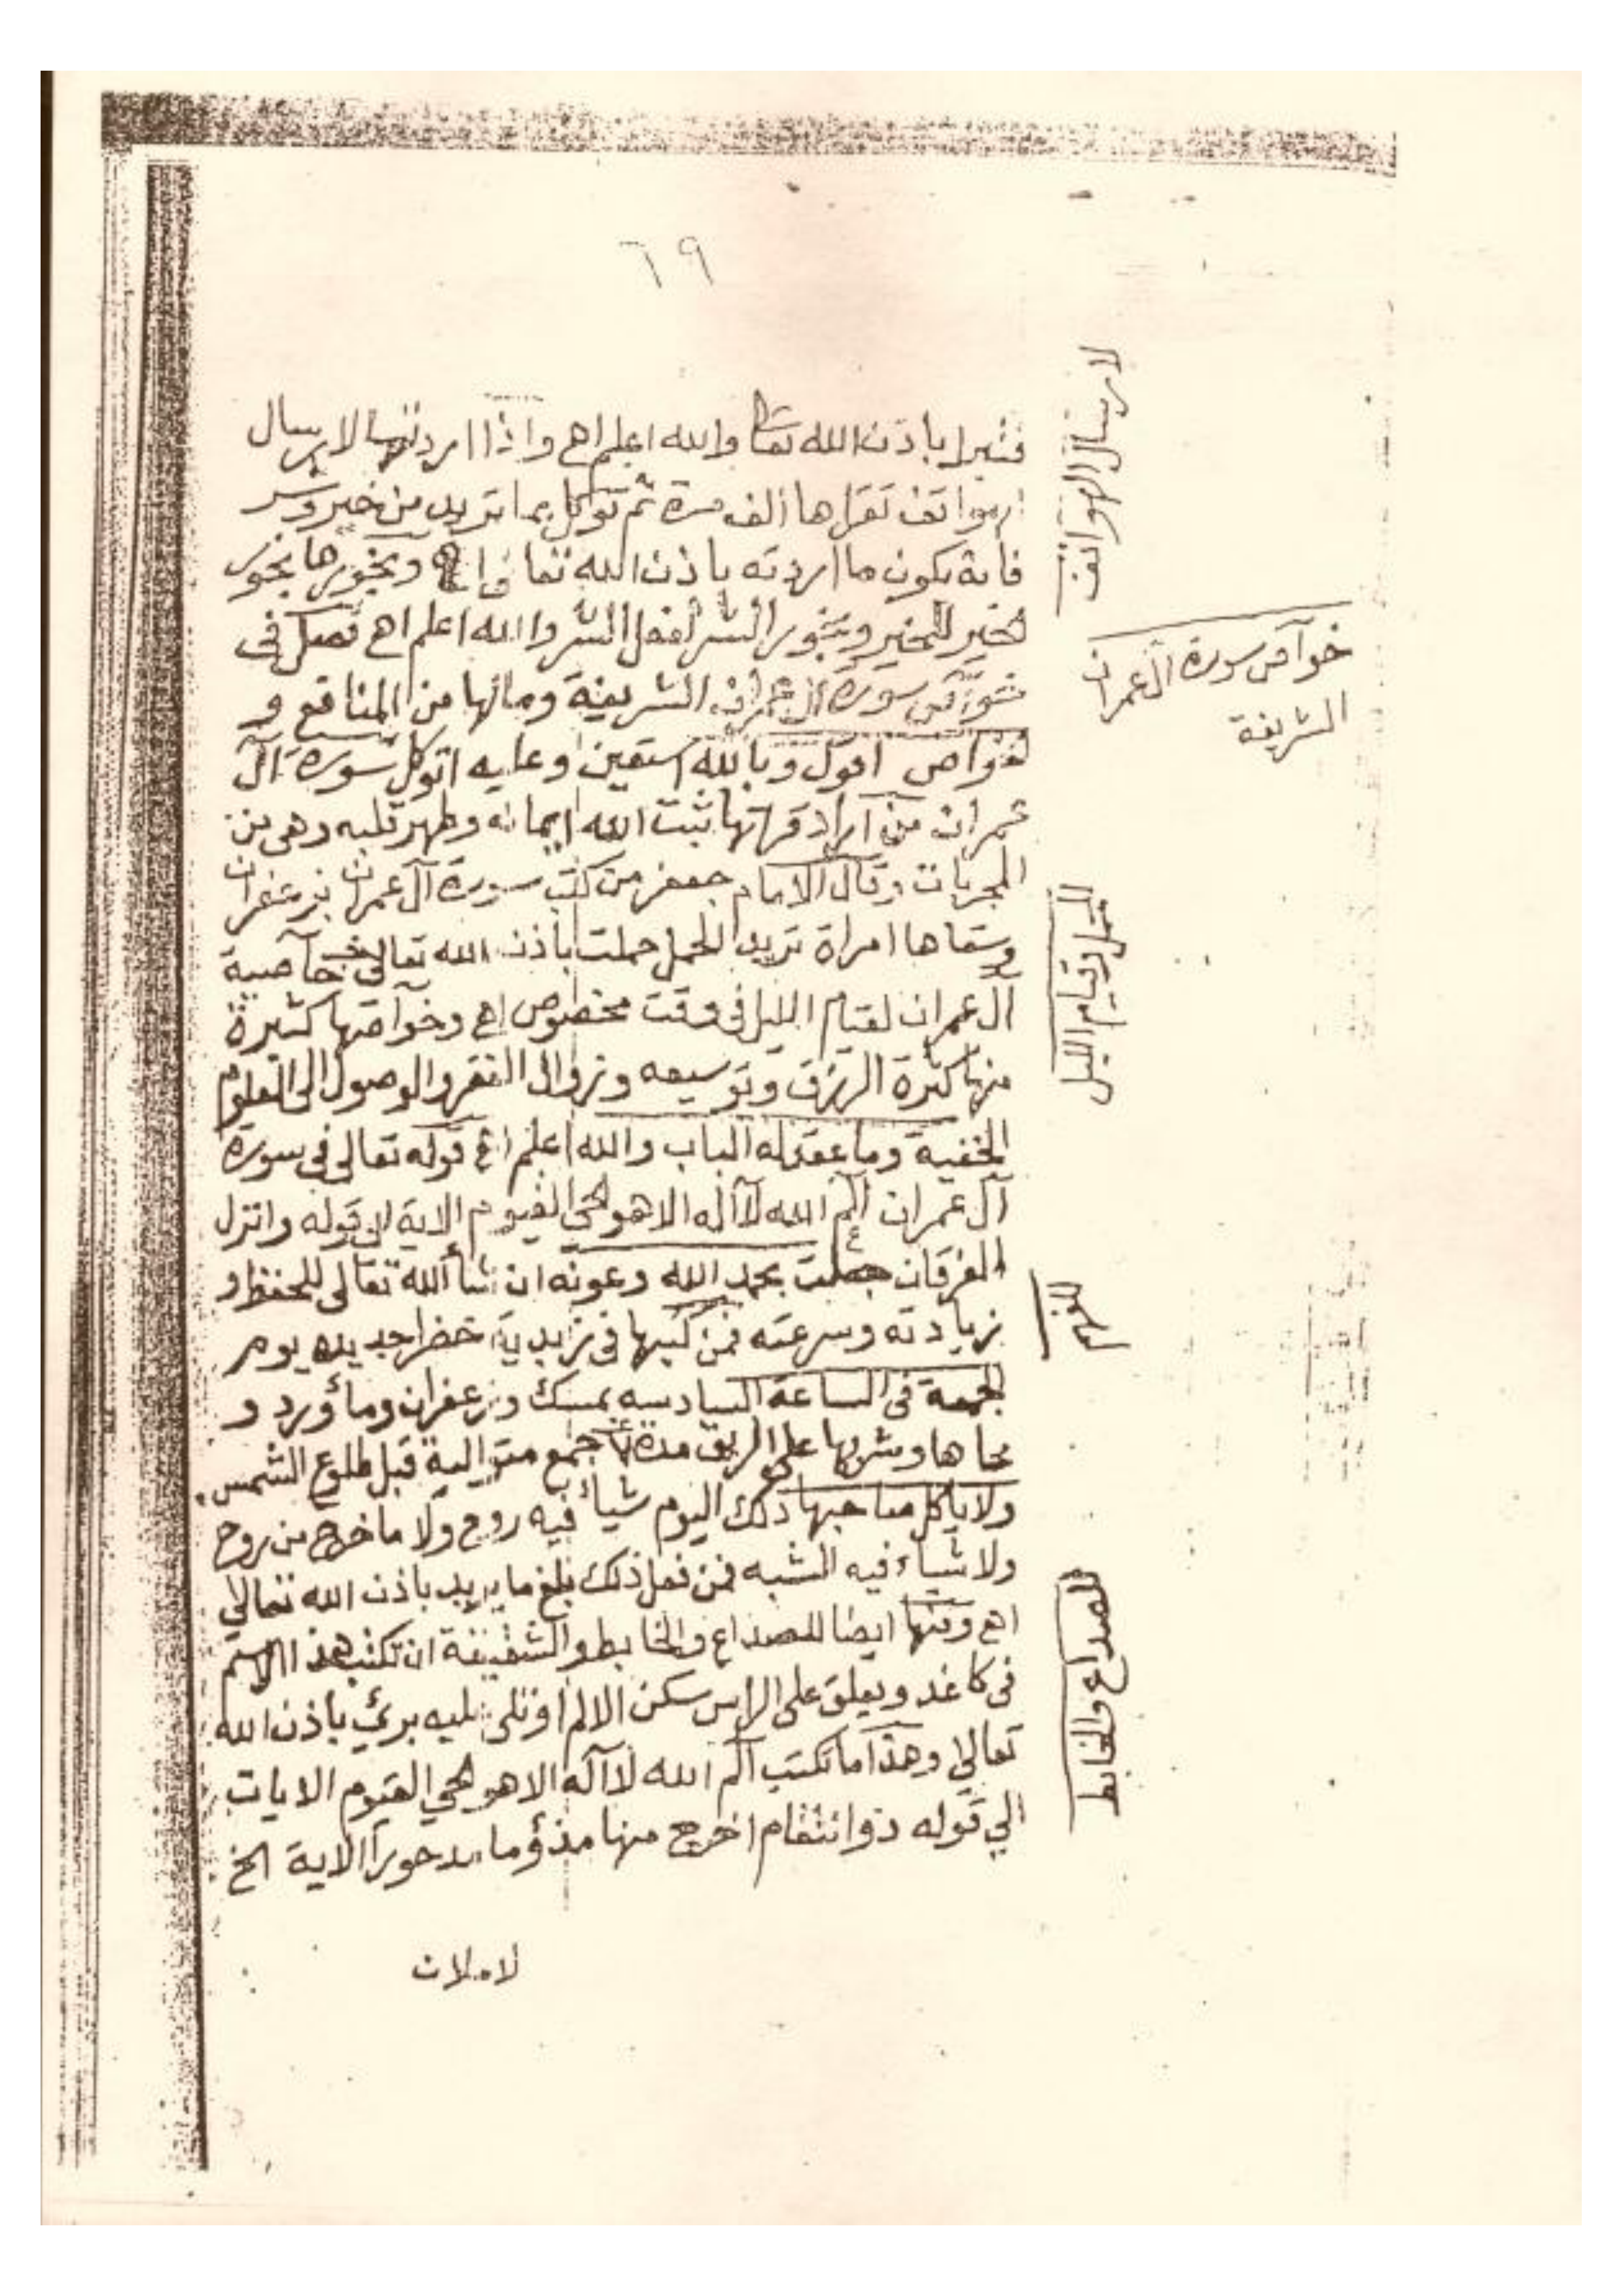 ٦٩
باذن الله تعا والله اعلم اهـ واذا اردتها لارسال
الهواتف تقراها ألف مرة ثم توكل بما تريد من خير وشر
فانه يكون ما اردته باذن الله تعا اهـ وبخورها بخور
الخير للخير وبخور الشر لفعل الشر والله اعلم اهـ فصل فى
خوآص سورة آل عمران الشريفة ومالها من المنافع و
الخواص اقول وبالله استعين وعليه اتوكل سورة آل
عمران من اراد قراتها ثبت الله ايمانه وطهر قلبه وهى من
المجربات وقال الامام جعفر من كتب سورة آل عمران بزعفران
وسقاها امراة تريد الحمل حملت باذن الله تعالى خآصية
آل عمران لقيام الليل فى وقت مخصوص اهـ وخوآصها كثيرة
منها كثرة الرزق وتوسيعه وزوال الفقر والوصول الى العلوم
الخفية وما عقد له الباب والله اعلم اهـ قوله تعالى فى سورة
آل عمران الم الله لآ اله الا هو الحي القيوم الاية الى قوله وانزل
الفرقان جعلت بحمد الله وعونه ان شأ الله تعالى للحفظ و
زيادته وسرعته فمن كتبها فى زبدية خضرا جديده يوم
الجمعة فى الساعة السادسه بمسك وزعفران ومأ ورد و
محاها وشربها على الريق مدة جمع متوالية قبل طلوع الشمس
ولا يأكل صاحبها ذلك اليوم شيأ فيه روح ولا ما خرج من روح
ولا شيأ فيه الشبه فمن فعل ذلك بلغ ما يريد باذن الله تعالى
اهـ ومنها ايضا للصداع والخابط والشقيقة ان تكتب هذا الاسم
فى كاغد ويعلق على الراس سكن الالم او تلى عليه برئ باذن الله
تعالى وهذا ما تكتب الم الله لآ اله الا هو الحي القيوم الايات
الى قوله ذو انتقام اخرج منها مذؤما مدحورا الاية الخ
لاملان
لارسال الهواتف
خوآص سورة آل عمران
الشريفة
للحمل وقيام الليل
للحفظ
للصداع والخابط